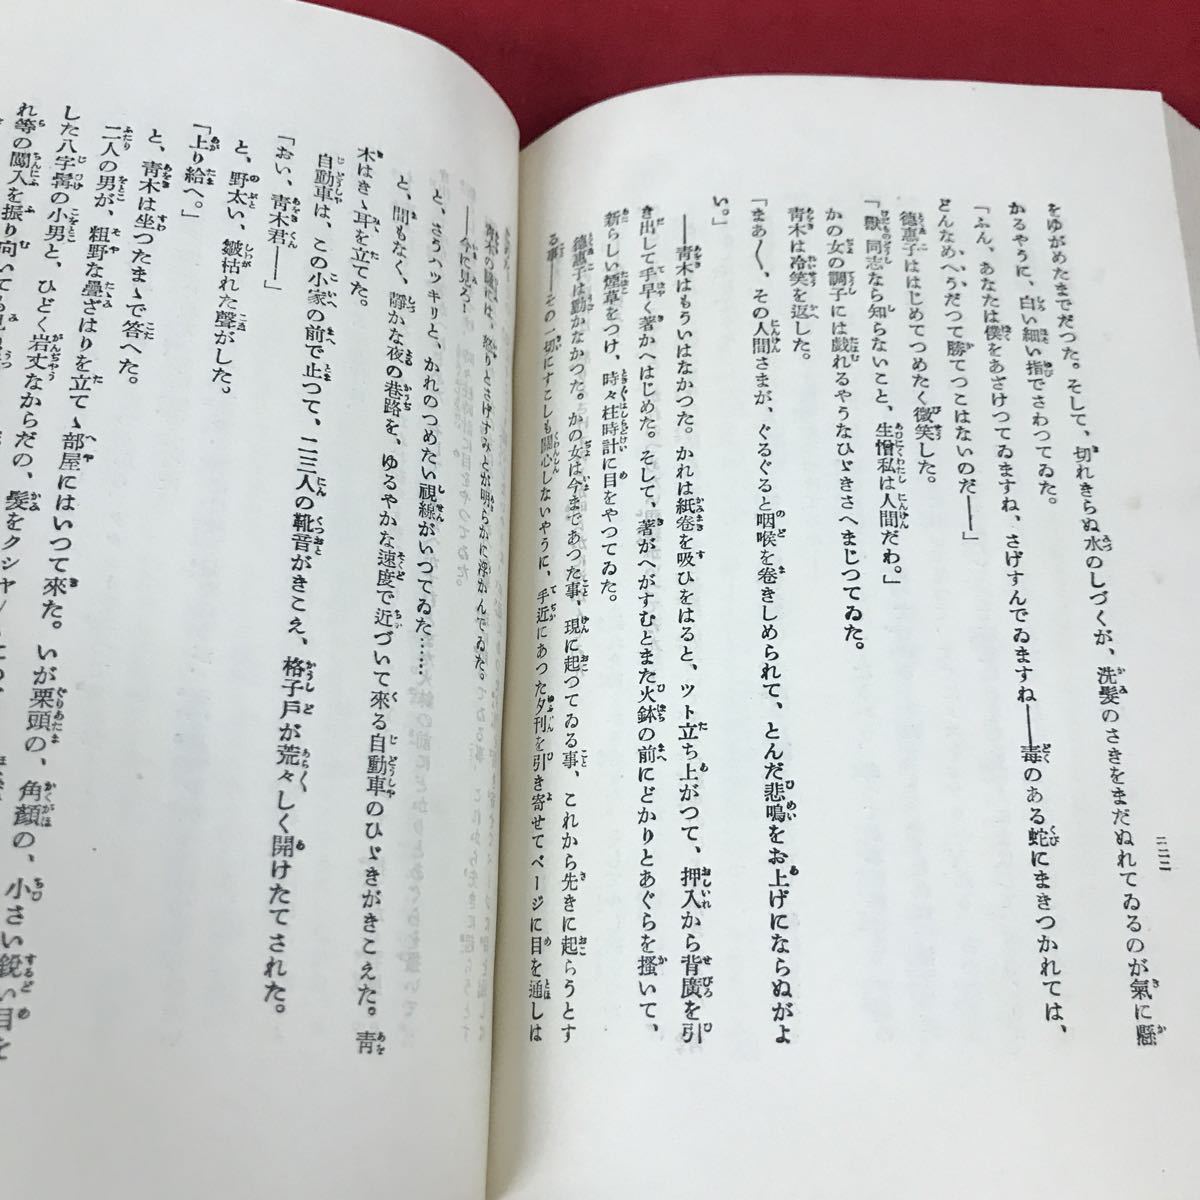 二二二
をゆがめたまでだつた。そして、切れきらぬ水のしづくが、洗髪のさきをまだぬれてゐるのが氣に懸
かるやうに、白い細い指でさわつてゐた。
「ふん、あなたは僕をあざけつてゐますね、さげすんでゐますね――毒のある蛇にまきつかれては、
どんなめへうだつて勝てつこはないのだ――」
德惠子ははじめてつめたく微笑した。
「獸同志なら知らないこと、生憎私は人間だわ。」
かの女の調子には戯れるやうなひゞきさへまじつてゐた。
青木は冷笑を返した。
「まあ〱、その人間さまが、ぐるぐると咽喉を卷きしめられて、とんだ悲鳴をお上げにならぬがよ
い。」
――青木はもういはなかつた。かれは紙卷を吸ひをはると、ツト立ち上がつて、押入から背廣を引
き出して手早く著かへはじめた。そして、著がへがすむとまた火鉢の前にどかりとあぐらを搔いて、
新らしい煙草をつけ、時々柱時計に目をやつてゐた。
德惠子は動かなかつた。かの女は今まであつた事、現に起つてゐる事、これから先きに起らうとす
る事――その一切にすこしも關心しないやうに、手近にあつた夕刊を引き寄せてページに目を通しは
――今に見ろ！
青木の顏には、怒りとさげすみとが明らかに浮かんでゐた。
と、さうハツキリと、かれのつめたい視線がいつてゐた……
と、間もなく、靜かな夜の巷路を、ゆるやかな速度で近づいて來る自動車のひゞきがきこえた。青
木はきゝ耳を立てた。
自動車は、この小家の前で止つて、二三人の靴音がきこえ、格子戸が荒々しく開けたてされた。
「おい、青木君――」
と、野太い、皺枯れた聲がした。
「上り給へ。」
と、青木は坐つたまゝで答へた。
二人の男が、粗野な疊ざはりを立てゝ部屋にはいつて來た。いが栗頭の、角顏の、小さい銳い目を
した八字髯の小男と、ひどく岩丈なからだの、髮をクシャ
れ等の闖入を振り向いても見